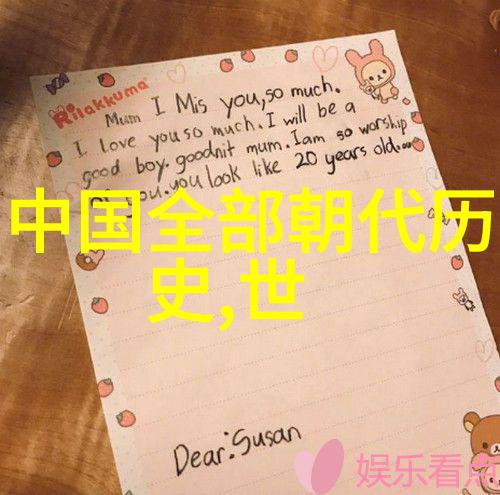 Rilakkuma
Mum I Mis you,so much.
I love you so much. I will be a
good boy. goodnit mum. Iam so worship
of you.you look like 20 years old.
中国全部朝代历
史,世
Dear:Susan
娱乐看点